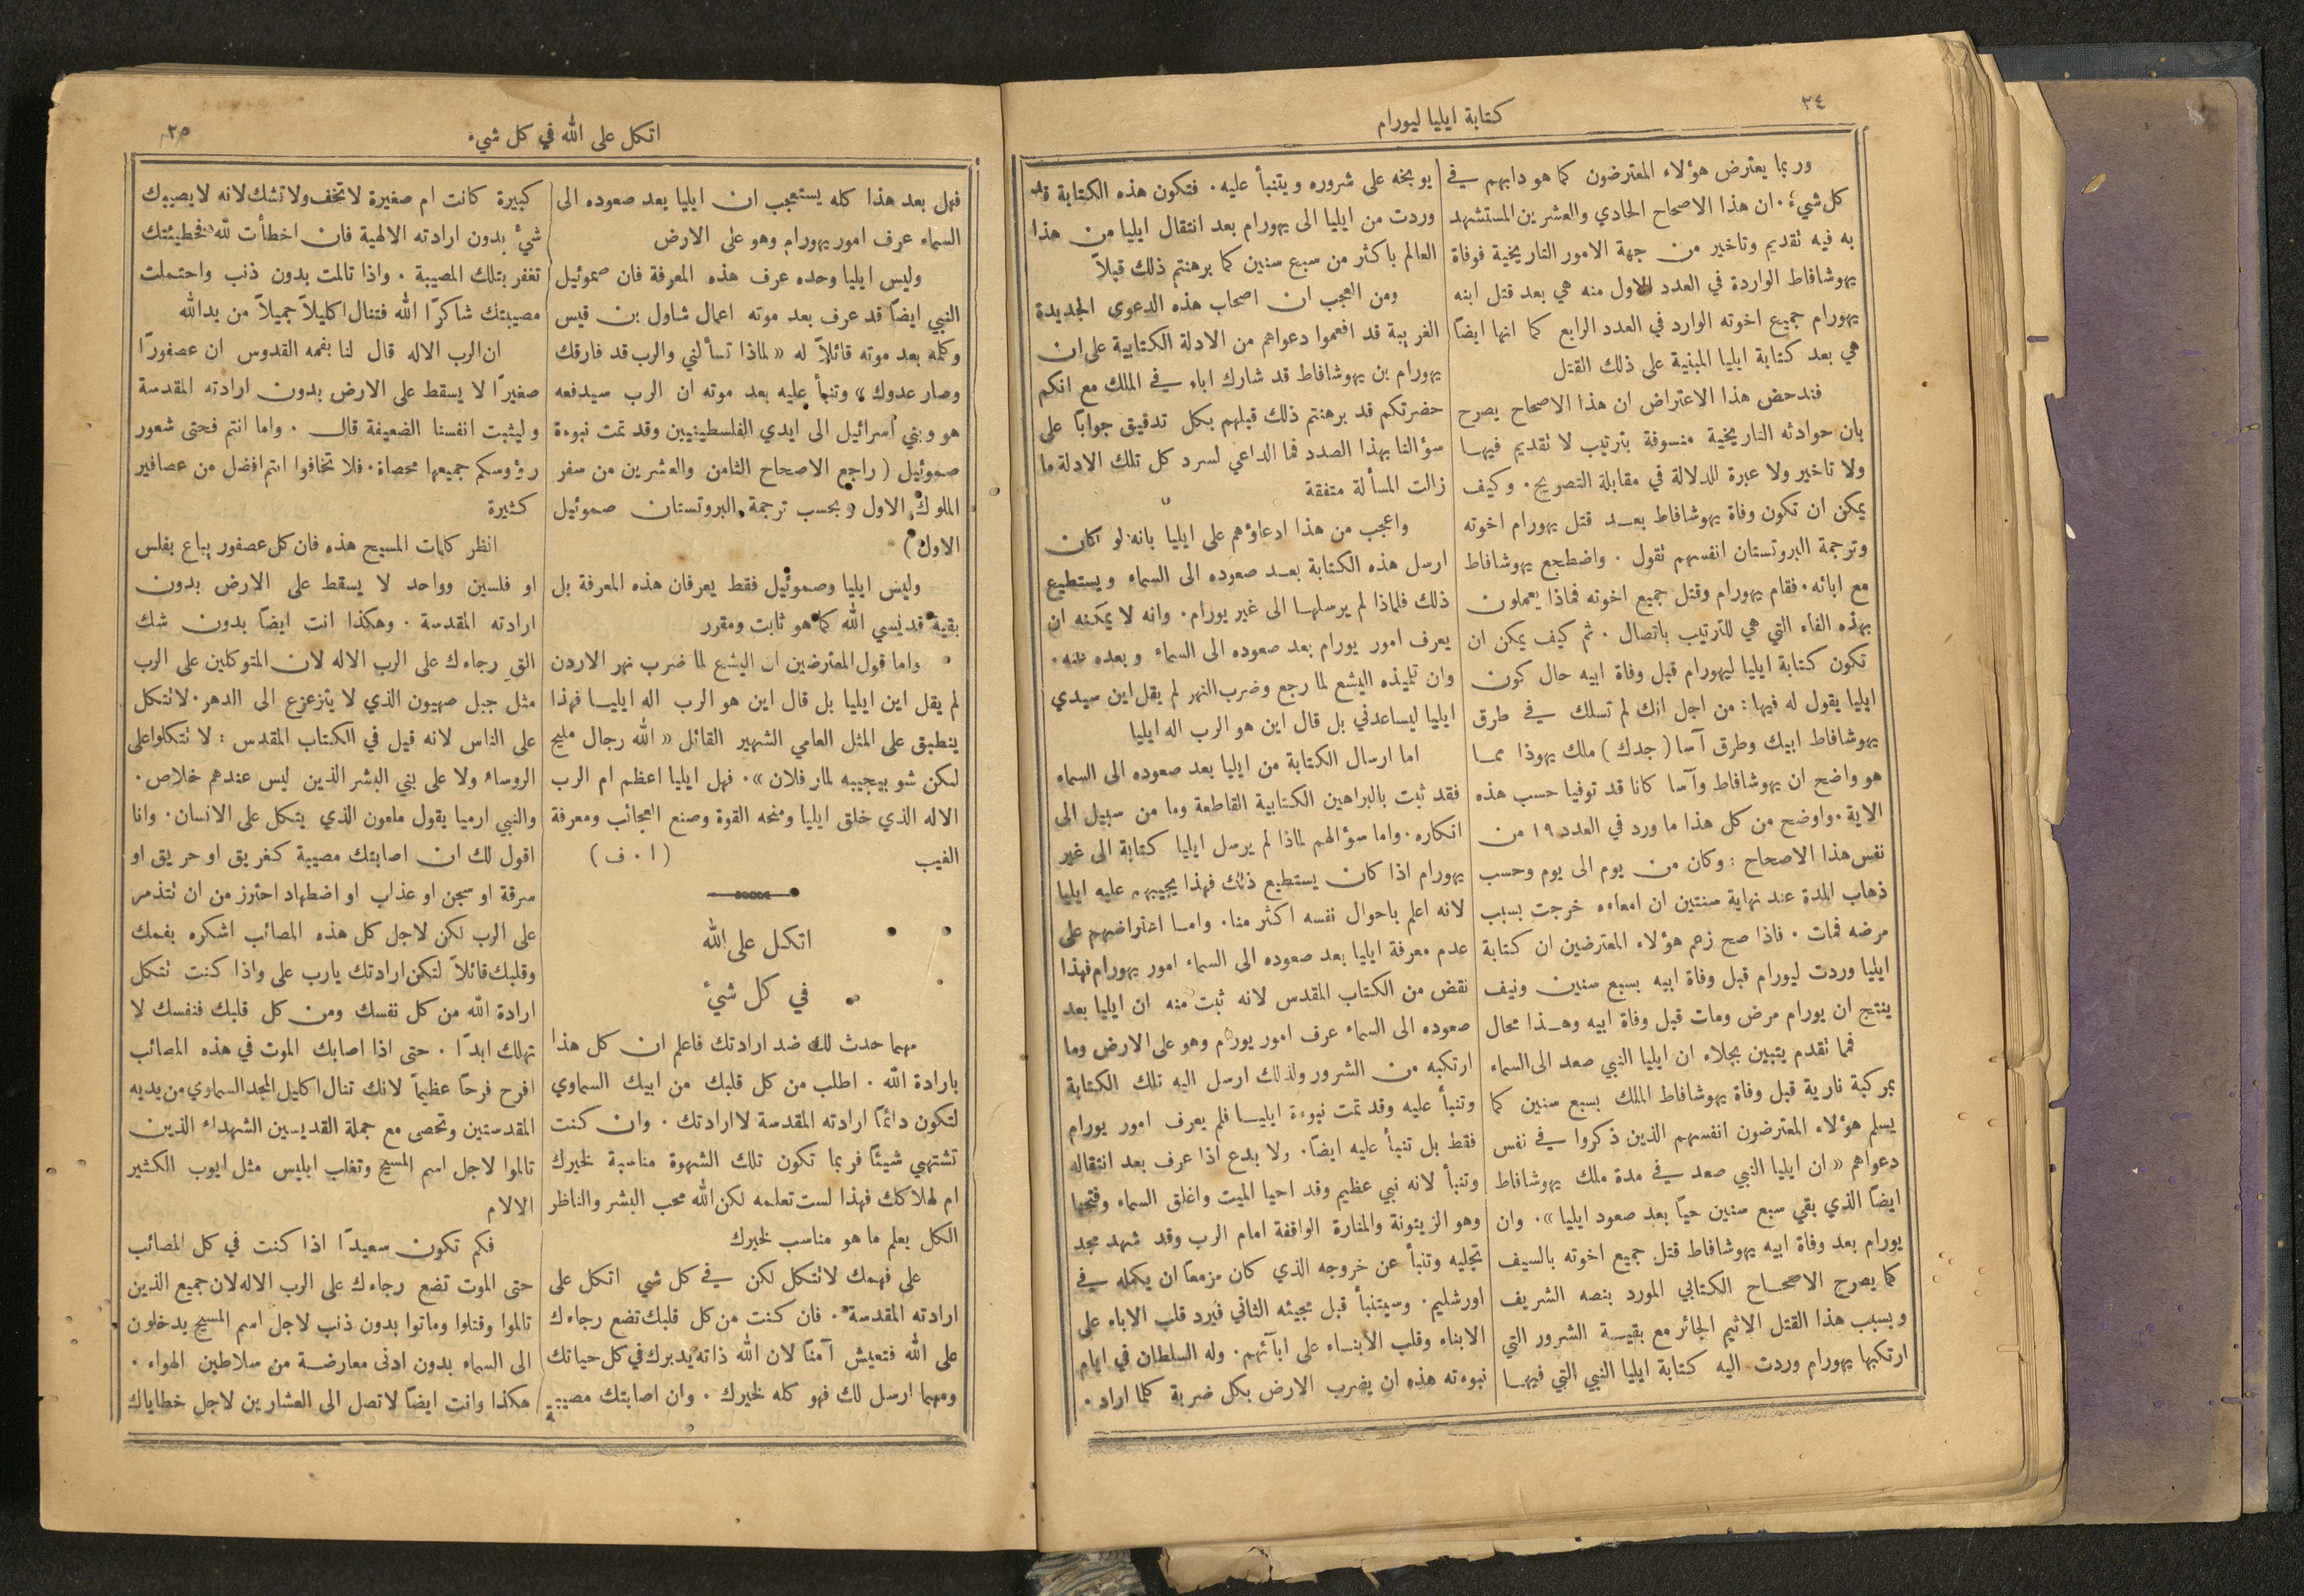 ٣٤
كتابة ايليا ليورام
وربما يعترض هؤلاء المعترضون كما هو دابهم في
كل شيء. ان هذا الاصحاح الحادي والعشرين المستشهد
به فيه تقديم وتاخير من جهة الامور التاريخية فوفاة
يهوشافاط الواردة في العدد الاول منه هي بعد قتل ابنه
يهورام جميع اخوته الوارد في العدد الرابع كما انها ايضاً
هي بعد كتابة ايليا المبنية على ذلك القتل
فندحض هذا الاعتراض ان هذا الاصحاح يصرح
بان حوادثه التاريخية منسوقة بترتيب لا تقديم فيهـا
ولا تاخير ولا عبرة للدلالة في مقابلة التصريح. وكيف
يمكن ان تكون وفاة يهوشافاط بعـد قتل يهورام اخوته
وترجمة البروتستان انفسهم تقول. واضطجع يهوشافاط
مع ابائه. فقام يهورام وقتل جميع اخوته فماذا يعملون
بهذه الفاء التي هي للترتيب باتصال. ثم كيف يمكن ان
تكون كتابة ايليا ليهورام قبل وفاة ابيه حال كون
ايليا يقول له فيها: من اجل انك لم تسلك في طرق
يهوشافاط ابيك وطرق آسا (جدك) ملك يهوذا ممـا
هو واضح ان يهوشافاط وآسا كانا قد توفيا حسب هذه
الاية. واوضح من كل هذا ما ورد في العدد ١٩ من
نفس هذا الاصحاح: وكان من يوم الى يوم وحسب
ذهاب المدة عند نهاية سنتين ان امعاءه خرجت بسبب
مرضه فمات. فاذا صح زعم هؤلاء المعترضين ان كتابة
ايليا وردت ليورام قبل وفاة ابيه بسبع سنين ونيف
ينتج ان يورام مرض ومات قبل وفاة ابيه وهـذا محال
فمما تقدم يتبين بجلاء ان ايليا النبي صعد الى السماء
بمركبة نارية قبل وفاة يهوشافاط الملك بسبع سنين كما
يسلم هؤلاء المعترضون انفسهم الذين ذكروا في نفس
دعواهم « ان ايليا النبي صعد في مدة ملك يهوشافاط
ايضاً الذي بقي سبع سنين حياً بعد صعود ايليا ». وان
يورام بعد وفاة ابيه يهوشافاط قتل جميع اخوته بالسيف
كما يصرح الاصحـاح الكتابي المورد بنصه الشريف
وبسبب هذا القتل الاثيم الجائر مع بقيـة الشرور التي
ارتكبها يهورام وردت اليه كتابة ايليا النبي التي فيهـا
يوبخه على شروره ويتنبأ عليه. فتكون هذه الكتابة قد
وردت من ايليا الى يهورام بعد انتقال ايليا من هذا
العالم باكثر من سبع سنين كما برهنتم ذلك قبلاً
ومن العجب ان اصحاب هذه الدعوى الجديدة
الغريبة قد افعموا دعواهم من الادلة الكتابية على ان
يهورام بن يهوشافاط قد شارك اباه في الملك مع انكم
حضرتكم قد برهنتم ذلك قبلهم بكل تدقيق جواباً على
سؤالنا بهذا الصدد فما الداعي لسرد كل تلك الادلة ما
زالت المسألة متفقة
واعجب من هذا ادعاؤهم على ايليا بانه لو كان
ارسل هذه الكتابة بعـد صعوده الى السماء ويستطيع
ذلك فلماذا لم يرسلهـا الى غير يورام. وانه لا يمكنه ان
يعرف امور يورام بعد صعوده الى السماء وبعده عنه.
وان تلميذه اليشع لما رجع وضرب النهر لم يقل اين سيدي
ايليا ليساعدني بل قال اين هو الرب اله ايليا
اما ارسال الكتابة من ايليا بعد صعوده الى السماء
فقد ثبت بالبراهين الكتابية القاطعة وما من سبيل الى
انكاره. واما سؤالهم لماذا لم يرسل ايليا كتابة الى غير
يهورام اذا كان يستطيع ذلك فهذا يجيبهم عليه ايليا
لانه اعلم باحوال نفسه اكثر منا. وامـا اعتراضهم على
عدم معرفة ايليا بعد صعوده الى السماء امور يهورام فهذا
نقض من الكتاب المقدس لانه ثبت منه ان ايليا بعد
صعوده الى السماء عرف امور يورام وهو على الارض وما
ارتكبه من الشرور ولذلك ارسل اليه تلك الكتابة
وتنبأ عليه وقد تمت نبوءة ايليـا فلم يعرف امور يورام
فقط بل تنبأ عليه ايضاً. ولا بدع اذا عرف بعد انتقاله
وتنبأ لانه نبي عظيم وقد احيا الميت واغلق السماء وفتحها
وهو الزيتونة والمنارة الواقفة امام الرب وقد شهد مجد
تجليه وتنبأ عن خروجه الذي كان مزمعاً ان يكمله في
اورشليم. وسيتنبأ قبل مجيئه الثاني فيرد قلب الاباء على
الابناء وقلب الابنـاء على ابآئهم. وله السلطان في ايام
نبوءته هذه ان يضرب الارض بكل ضربة كلما اراد.
اتكل على الله في كل شيء
٣٥
فهل بعد هذا كله يستعجب ان ايليا بعد صعوده الى
السماء عرف امور يهورام وهو على الارض
وليس ايليا وحده عرف هذه المعرفة فان صموئيل
النبي ايضاً قد عرف بعد موته اعمال شاول بن قيس
وكلمه بعد موته قائلاً له « لماذا تسألني والرب قد فارقك
وصار عدوك » وتنبأ عليه بعد موته ان الرب سيدفعه
هو وبني اسرائيل الى ايدي الفلسطينيين وقد تمت نبوءة
صموئيل ( راجع الاصحاح الثامن والعشرين من سفر
الملوك الاول وبحسب ترجمة البروتستان صموئيل
الاول )
وليس ايليا وصموئيل فقط يعرفان هذه المعرفة بل
بقية قديسي الله كما هو ثابت ومقرر
واما قول المعترضين ان اليشع لما ضرب نهر الاردن
لم يقل اين ايليا بل قال اين هو الرب اله ايليـا فهذا
ينطبق على المثل العامي الشهير القائل « الله رجال مليح
لكن شو بيجيبه لمار فلان ». فهل ايليا اعظم ام الرب
الاله الذي خلق ايليا ومنحه القوة وصنع العجائب ومعرفة
الغيب (ا. ف)
اتكل على الله
في كل شيء
مهما حدث لك ضد ارادتك فاعلم ان كل هذا
بارادة الله. اطلب من كل قلبك من ابيك السماوي
لتكون دائماً ارادته المقدسة لا ارادتك. وان كنت
تشتهي شيئاً فربما تكون تلك الشهوة مناسبة لخيرك
ام لهلاكك فهذا لست تعلمه لكن الله محب البشر والناظر
الكل يعلم ما هو مناسب لخيرك
على فهمك لا تتكل لكن في كل شي اتكل على
ارادته المقدسة. فان كنت من كل قلبك تضع رجاءك
على الله فتعيش آمناً لان الله ذاته يدبرك في كل حياتك
ومهما ارسل لك فهو كله لخيرك. وان اصابتك مصيبة
كبيرة كانت ام صغيرة لا تخف ولا تشك لانه لا يصيبك
شيء بدون ارادته الالهية فان اخطأت لله فخطيئتك
تغفر بتلك المصيبة. واذا تالمت بدون ذنب واحتملت
مصيبتك شاكراً الله فتنال اكليلاً جميلاً من يد الله
ان الرب الاله قال لنا بفمه القدوس ان عصفوراً
صغيراً لا يسقط على الارض بدون ارادته المقدسة
وليثبت انفسنا الضعيفة قال. واما انتم فحتى شعور
رؤوسكم جميعها محصاة. فلا تخافوا انتم افضل من عصافير
كثيرة
انظر كلمات المسيح هذه فان كل عصفور يباع بفلس
او فلسين وواحد لا يسقط على الارض بدون
ارادته المقدسة. وهكذا انت ايضاً بدون شك
القِ رجاءك على الرب الاله لان المتوكلين على الرب
مثل جبل صهيون الذي لا يتزعزع الى الدهر. لا تتكل
على الناس لانه قيل في الكتاب المقدس: لا تتكلوا على
الروساء ولا على بني البشر الذين ليس عندهم خلاص.
والنبي ارميا يقول ملعون الذي يتكل على الانسان. وانا
اقول لك ان اصابتك مصيبة كغريق او حريق او
سرقة او سجن او عذاب او اضطهاد احترز من ان تتذمر
على الرب لكن لاجل كل هذه المصائب اشكره بفمك
وقلبك قائلاً لتكن ارادتك يارب على واذا كنت تتكل
ارادة الله من كل نفسك ومن كل قلبك فنفسك لا
تهلك ابداً. حتى اذا اصابك الموت في هذه المصائب
افرح فرحاً عظيماً لانك تنال اكليل المجد السماوي من يديه
المقدستين وتحصى مع جملة القديسين الشهداء الذين
تالموا لاجل اسم المسيح وتغلب ابليس مثل ايوب الكثير
الالام
فكم تكون سعيداً اذا كنت في كل المصائب
حتى الموت تضع رجاءك على الرب الاله لان جميع الذين
تالموا وقتلوا وماتوا بدون ذنب لاجل اسم المسيح يدخلون
الى السماء بدون ادنى معارضة من سلاطين الهواء.
هكذا وانت ايضاً لا تصل الى العشارين لاجل خطاياك